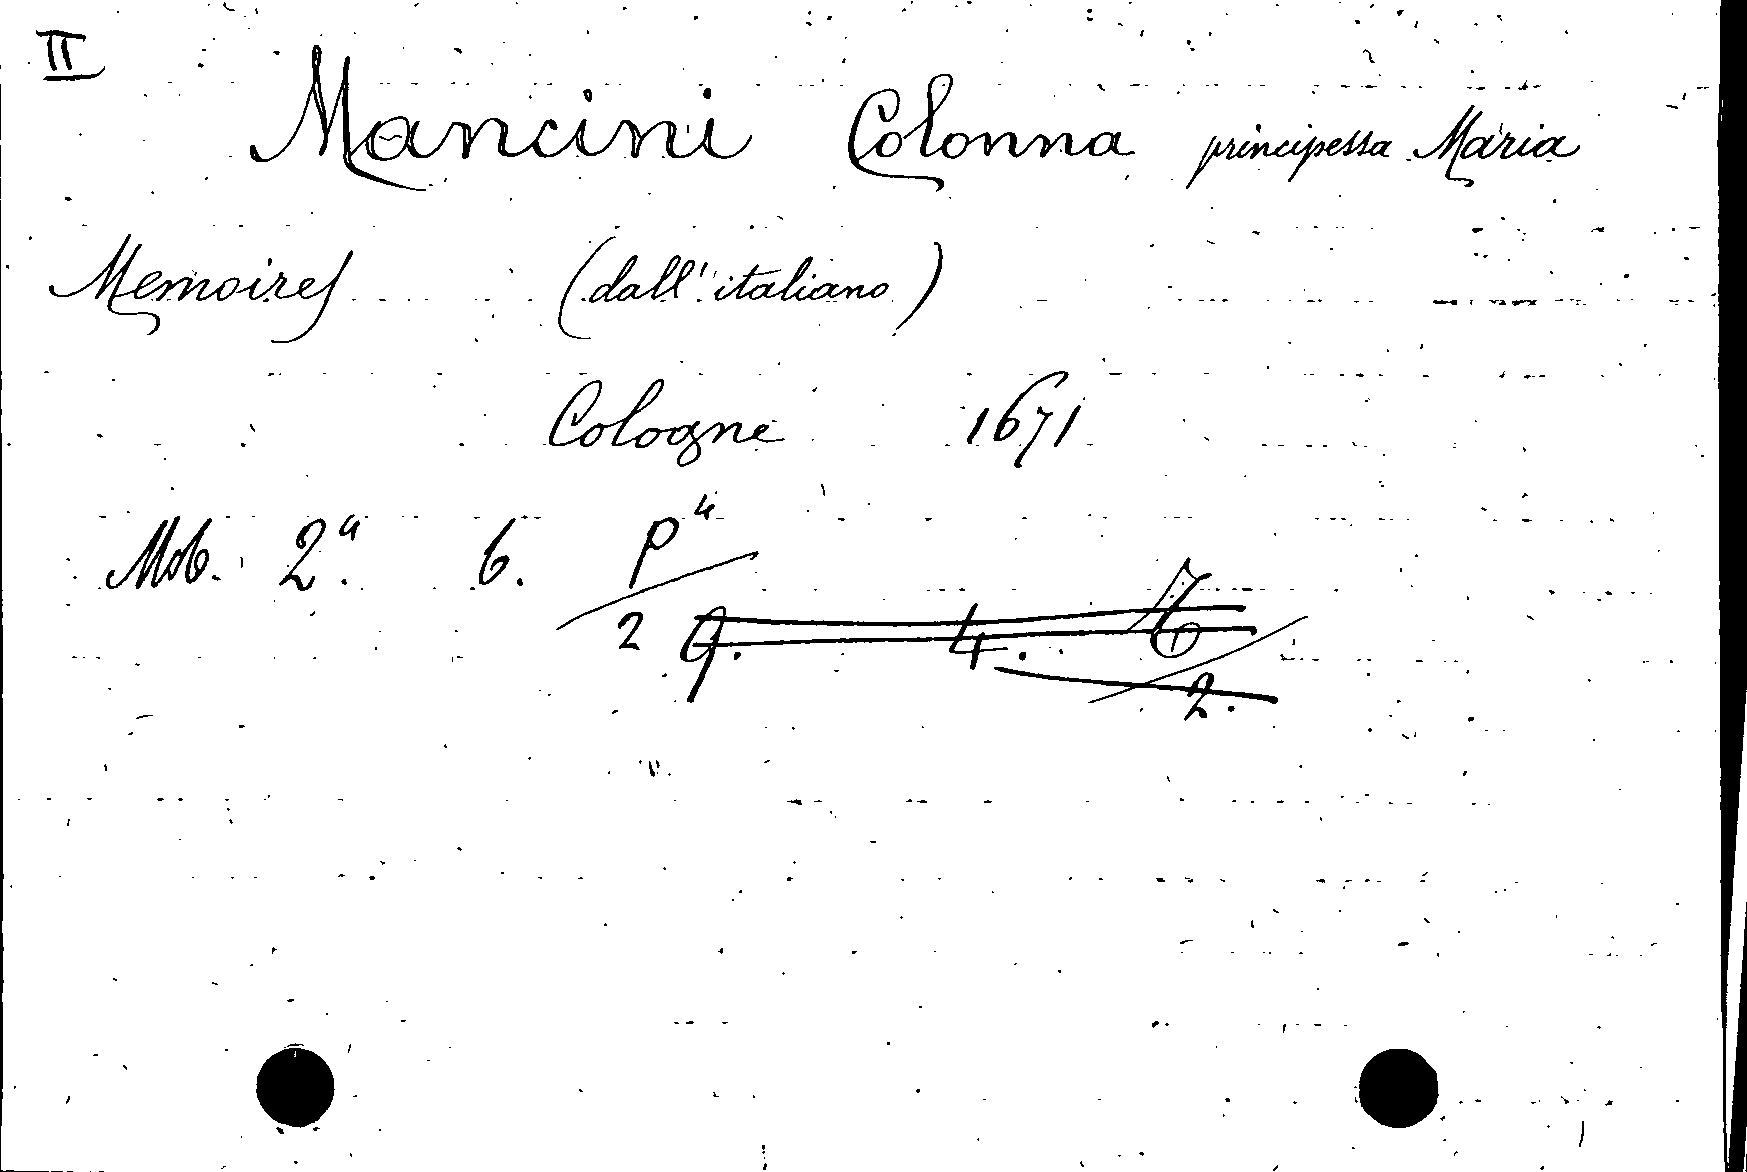 II
Mancini Colonna principessa Maria
Memoires (dall'italiano)
Cologne 1671
Mob. 2ª. 6. P⁴
2 9. 4. 
2.